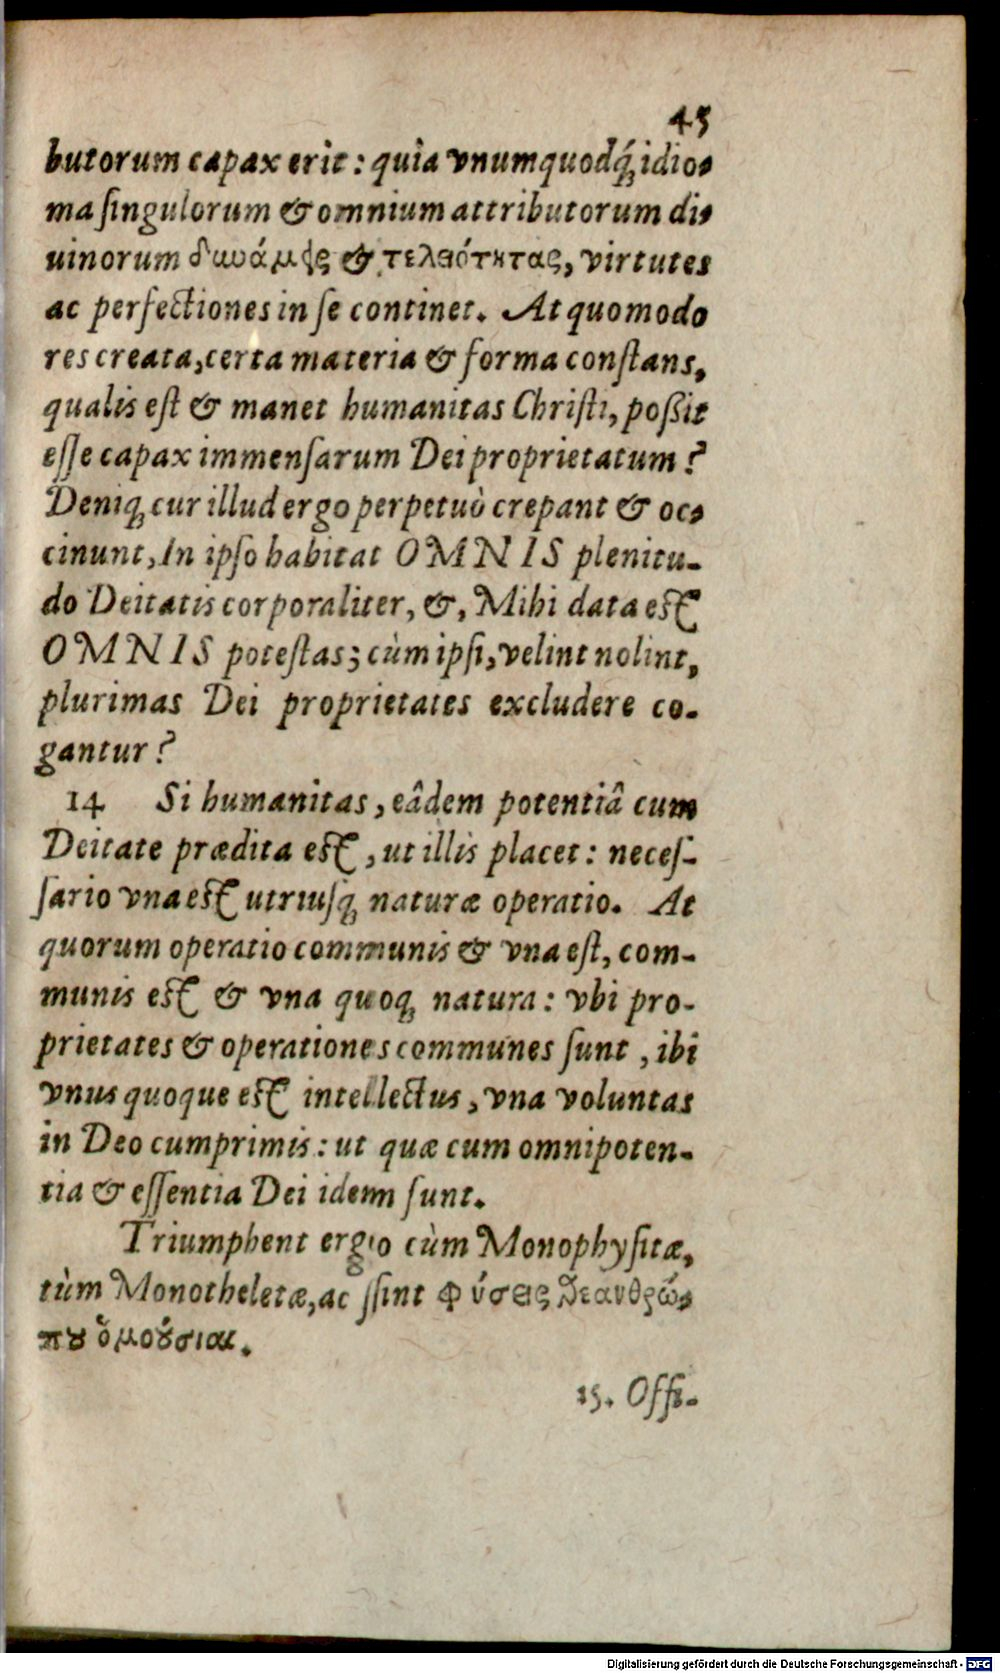 45
butorum capax erit: quia vnumquodq́; idio-
ma singulorum & omnium attributorum di-
uinorum δυνάμεις & τελειότητας, virtutes
ac perfectiones in se continet. At quomodo
res creata, certa materia & forma constans,
qualis est & manet humanitas Christi, poßit
esse capax immensarum Dei proprietatum?
Deniq; cur illud ergo perpetuò crepant & oc-
cinunt, In ipso habitat OMNIS plenitu-
do Deitatis corporaliter, &, Mihi data est
OMNIS potestas; cùm ipsi, velint nolint,
plurimas Dei proprietates excludere co-
gantur?
14 Si humanitas, eâdem potentiâ cum
Deitate prædita est, ut illis placet: neces-
sario vna est utriusq; naturæ operatio. At
quorum operatio communis & vna est, com-
munis est & vna quoq; natura: vbi pro-
prietates & operationes communes sunt, ibi
vnus quoque est intellectus, vna voluntas
in Deo cumprimis: ut quæ cum omnipoten-
tia & essentia Dei idem sunt.
Triumphent ergo cùm Monophysitæ,
tùm Monotheletæ, ac ssint φύσεις θεανθρώ-
που ὁμούσιαι.
15. Offi-
Digitalisierung gefördert durch die Deutsche Forschungsgemeinschaft - DFG